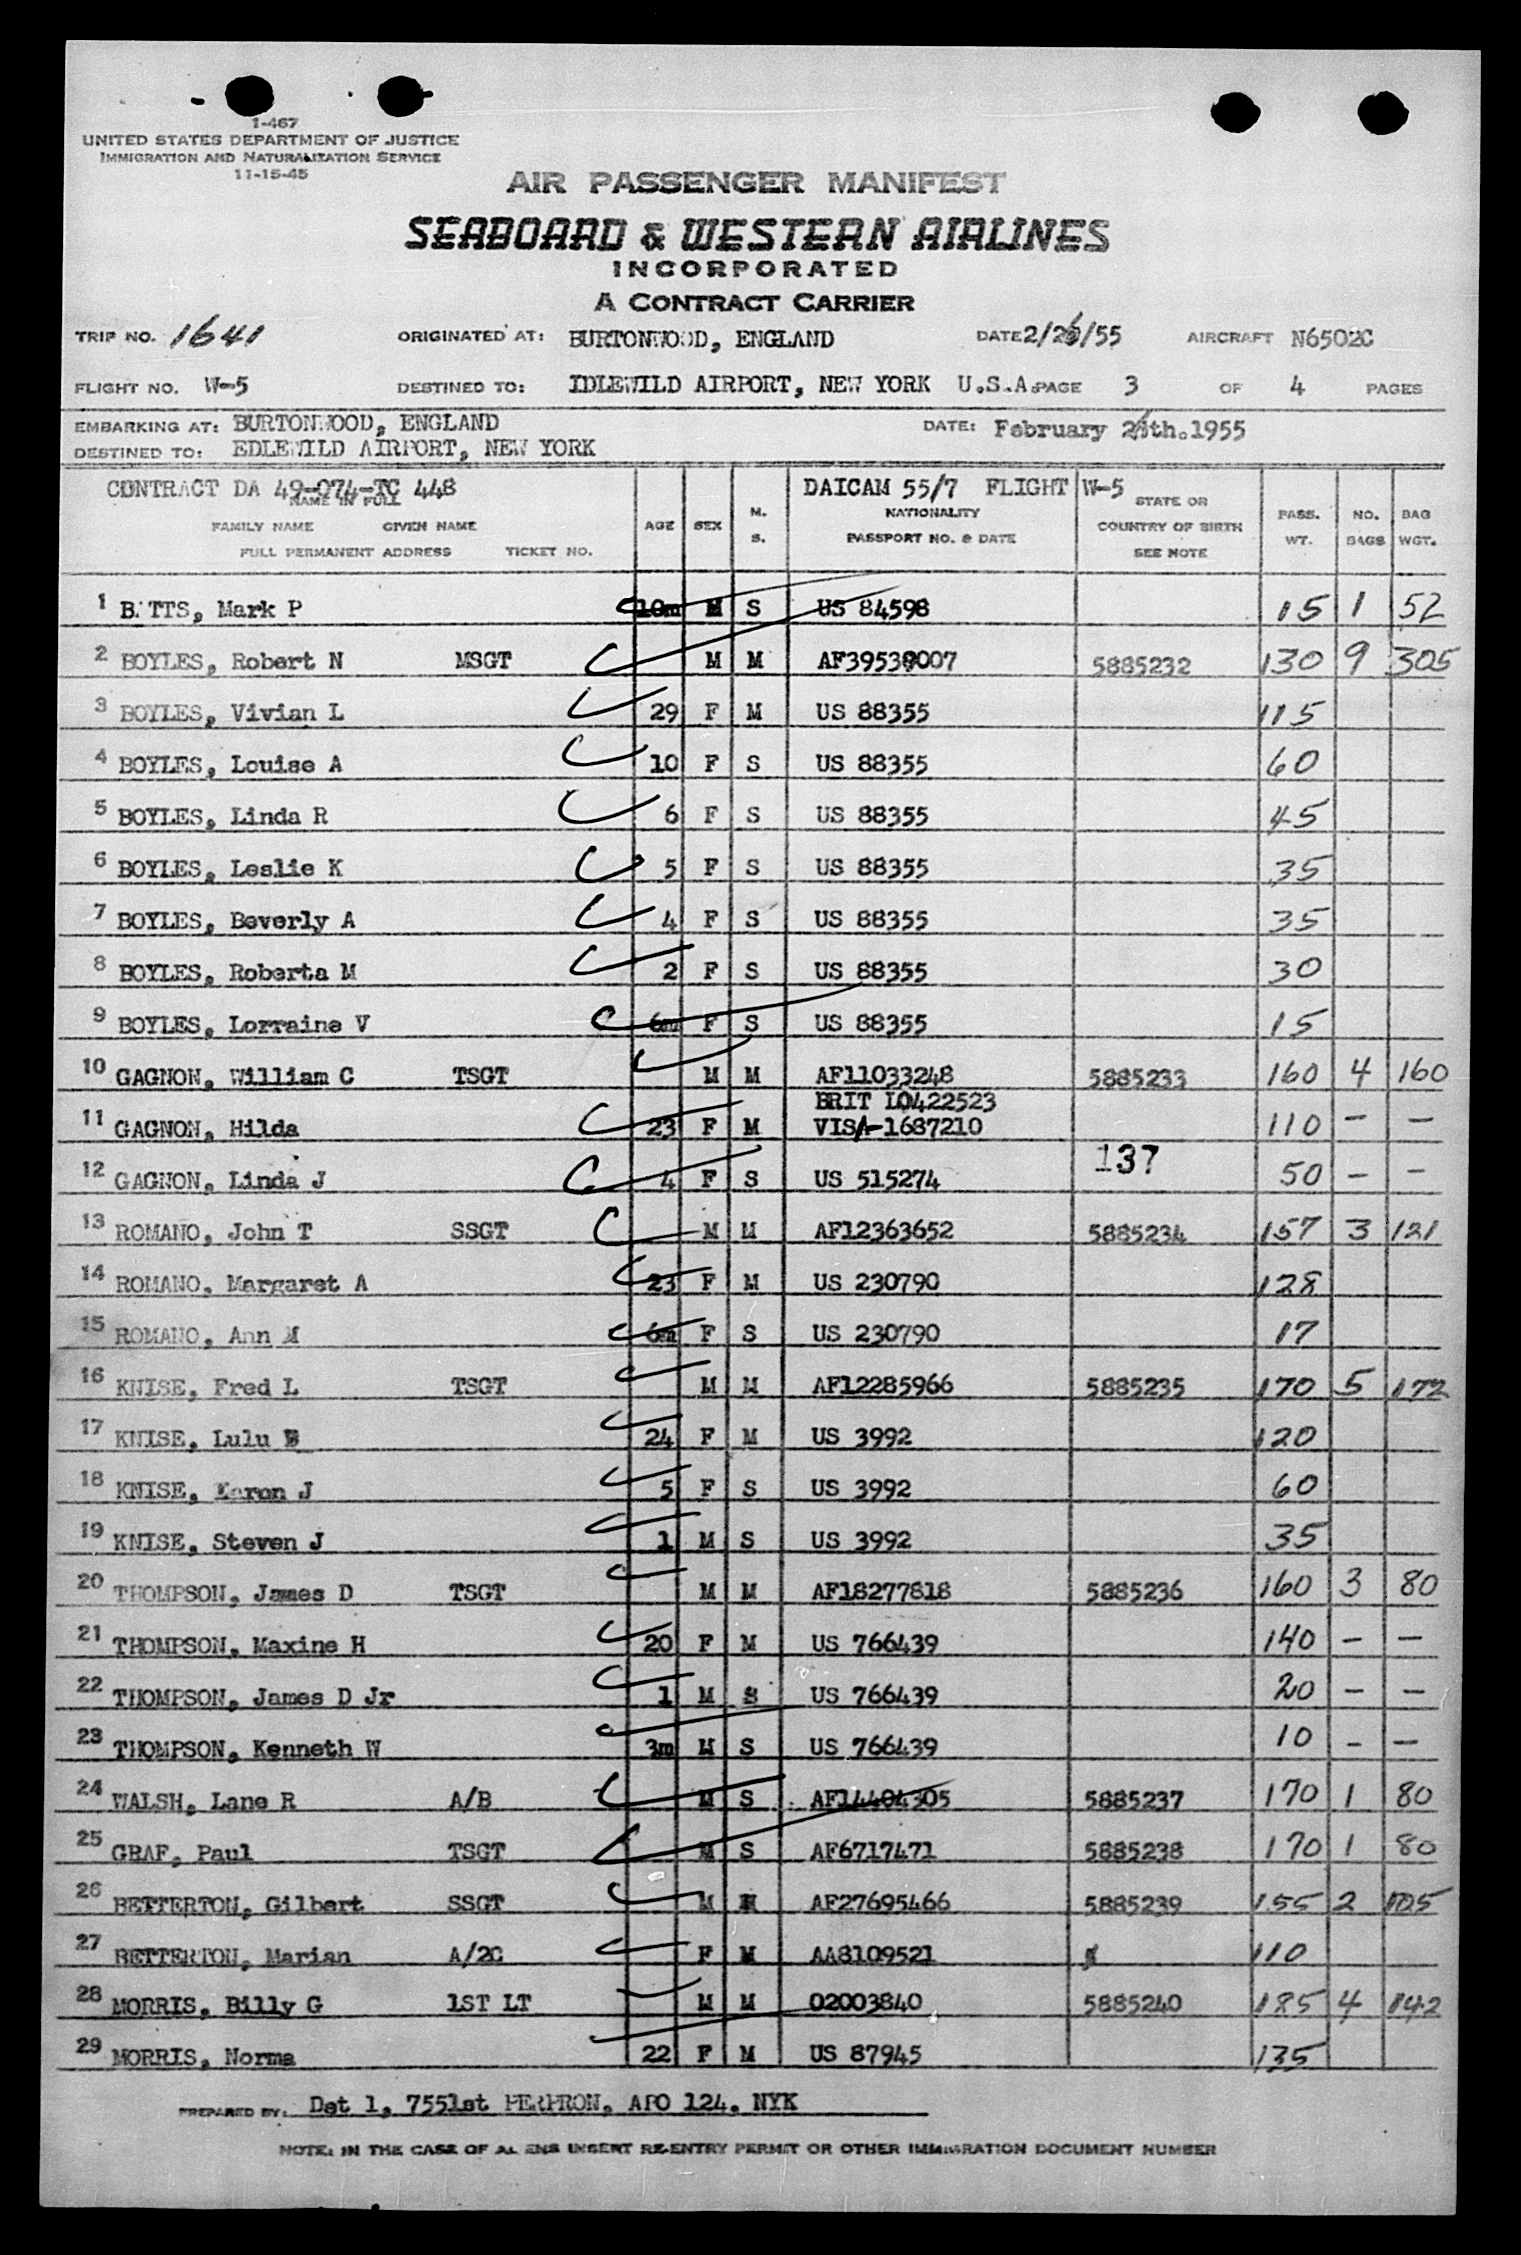 1-467
UNITED STATES DEPARTMENT OF JUSTICE
IMMIGRATION AND NATURALIZATION SERVICE
11-15-45
AIR PASSENGER MANIFEST
SEABOARD & WESTERN AIRLINES
INCORPORATED
A CONTRACT CARRIER
TRIP NO. 1641 ORIGINATED AT: BURTONWOOD, ENGLAND DATE 2/26/55 AIRCRAFT N6502C
FLIGHT NO. W-5 DESTINED TO: IDLEWILD AIRPORT, NEW YORK U.S.A. PAGE 3 OF 4 PAGES
EMBARKING AT: BURTONWOOD, ENGLAND DATE: February 26th.1955
DESTINED TO: EDLEWILD AIRPORT, NEW YORK
CONTRACT DA 49-074-TC 448 DAICAM 55/7 FLIGHT W-5
NAME IN FULL AGE SEX M. S. NATIONALITY STATE OR PASS. WT. NO. BAGS BAG WGT.
FAMILY NAME GIVEN NAME PASSPORT NO. & DATE COUNTRY OF BIRTH
FULL PERMANENT ADDRESS TICKET NO. SEE NOTE
1 Mark P 10m M S US 84598 15 1 52
2 BOYLES, Robert N MSGT M M AF39538007 5885232 130 9 305
3 BOYLES, Vivian L 29 F M US 88355 115
4 BOYLES, Louise A 10 F S US 88355 60
5 BOYLES, Linda R 6 F S US 88355 45
6 BOYLES, Leslie K 5 F S US 88355 35
7 BOYLES, Beverly A 4 F S US 88355 35
8 BOYLES, Roberta M 2 F S US 88355 30
9 BOYLES, Lorraine V 6m F S US 88355 15
10 GAGNON, William C TSGT M M AF11033248 5885233 160 4 160
11 GAGNON, Hilda 23 F M BRIT L0422523 110 - -
VISA-1687210
137
12 GAGNON, Linda J 4 F S US 515274 50 - -
13 ROMANO, John T SSGT M M AF12363652 5885234 157 3 121
14 ROMANO, Margaret A 23 F M US 230790 128
15 ROMANO, Ann M 6m F S US 230790 17
16 KNISE, Fred L TSGT M M AF12285966 5885235 170 5 172
17 KNISE, Lulu B 24 F M US 3992 120
18 KNISE, J 5 F S US 3992 60
19 KNISE, Steven J 1 M S US 3992 35
20 THOMPSON, James D TSGT M M AF18277818 5885236 160 3 80
21 THOMPSON, Maxine H 20 F M US 766439 140 - -
22 THOMPSON, James D Jr 1 M S US 766439 20 - -
23 THOMPSON, Kenneth W 3m M S US 766439 10 - -
24 WALSH, Lane R A/B M S AF14404305 5885237 170 1 80
25 GRAF, Paul TSGT M S AF6717471 5885238 170 1 80
26 BETTERTON, Gilbert SSGT M M AF27695466 5885239 155 2 105
27 BETTERTON, Marian A/2C F M AA8109521 110
28 MORRIS, Billy G 1ST LT M M 02003840 5885240 185 4 142
29 MORRIS, Norma 22 F M US 87945 135
PREPARED BY: Det 1, 7551st PERPRON, APO 124, NYK
NOTE: IN THE CASE OF ALIENS INSERT RE-ENTRY PERMIT OR OTHER IMMIGRATION DOCUMENT NUMBER